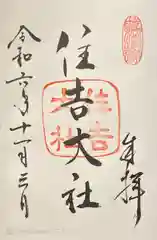 奉拝
住吉大社
住吉
大社
令和六年十一月三日